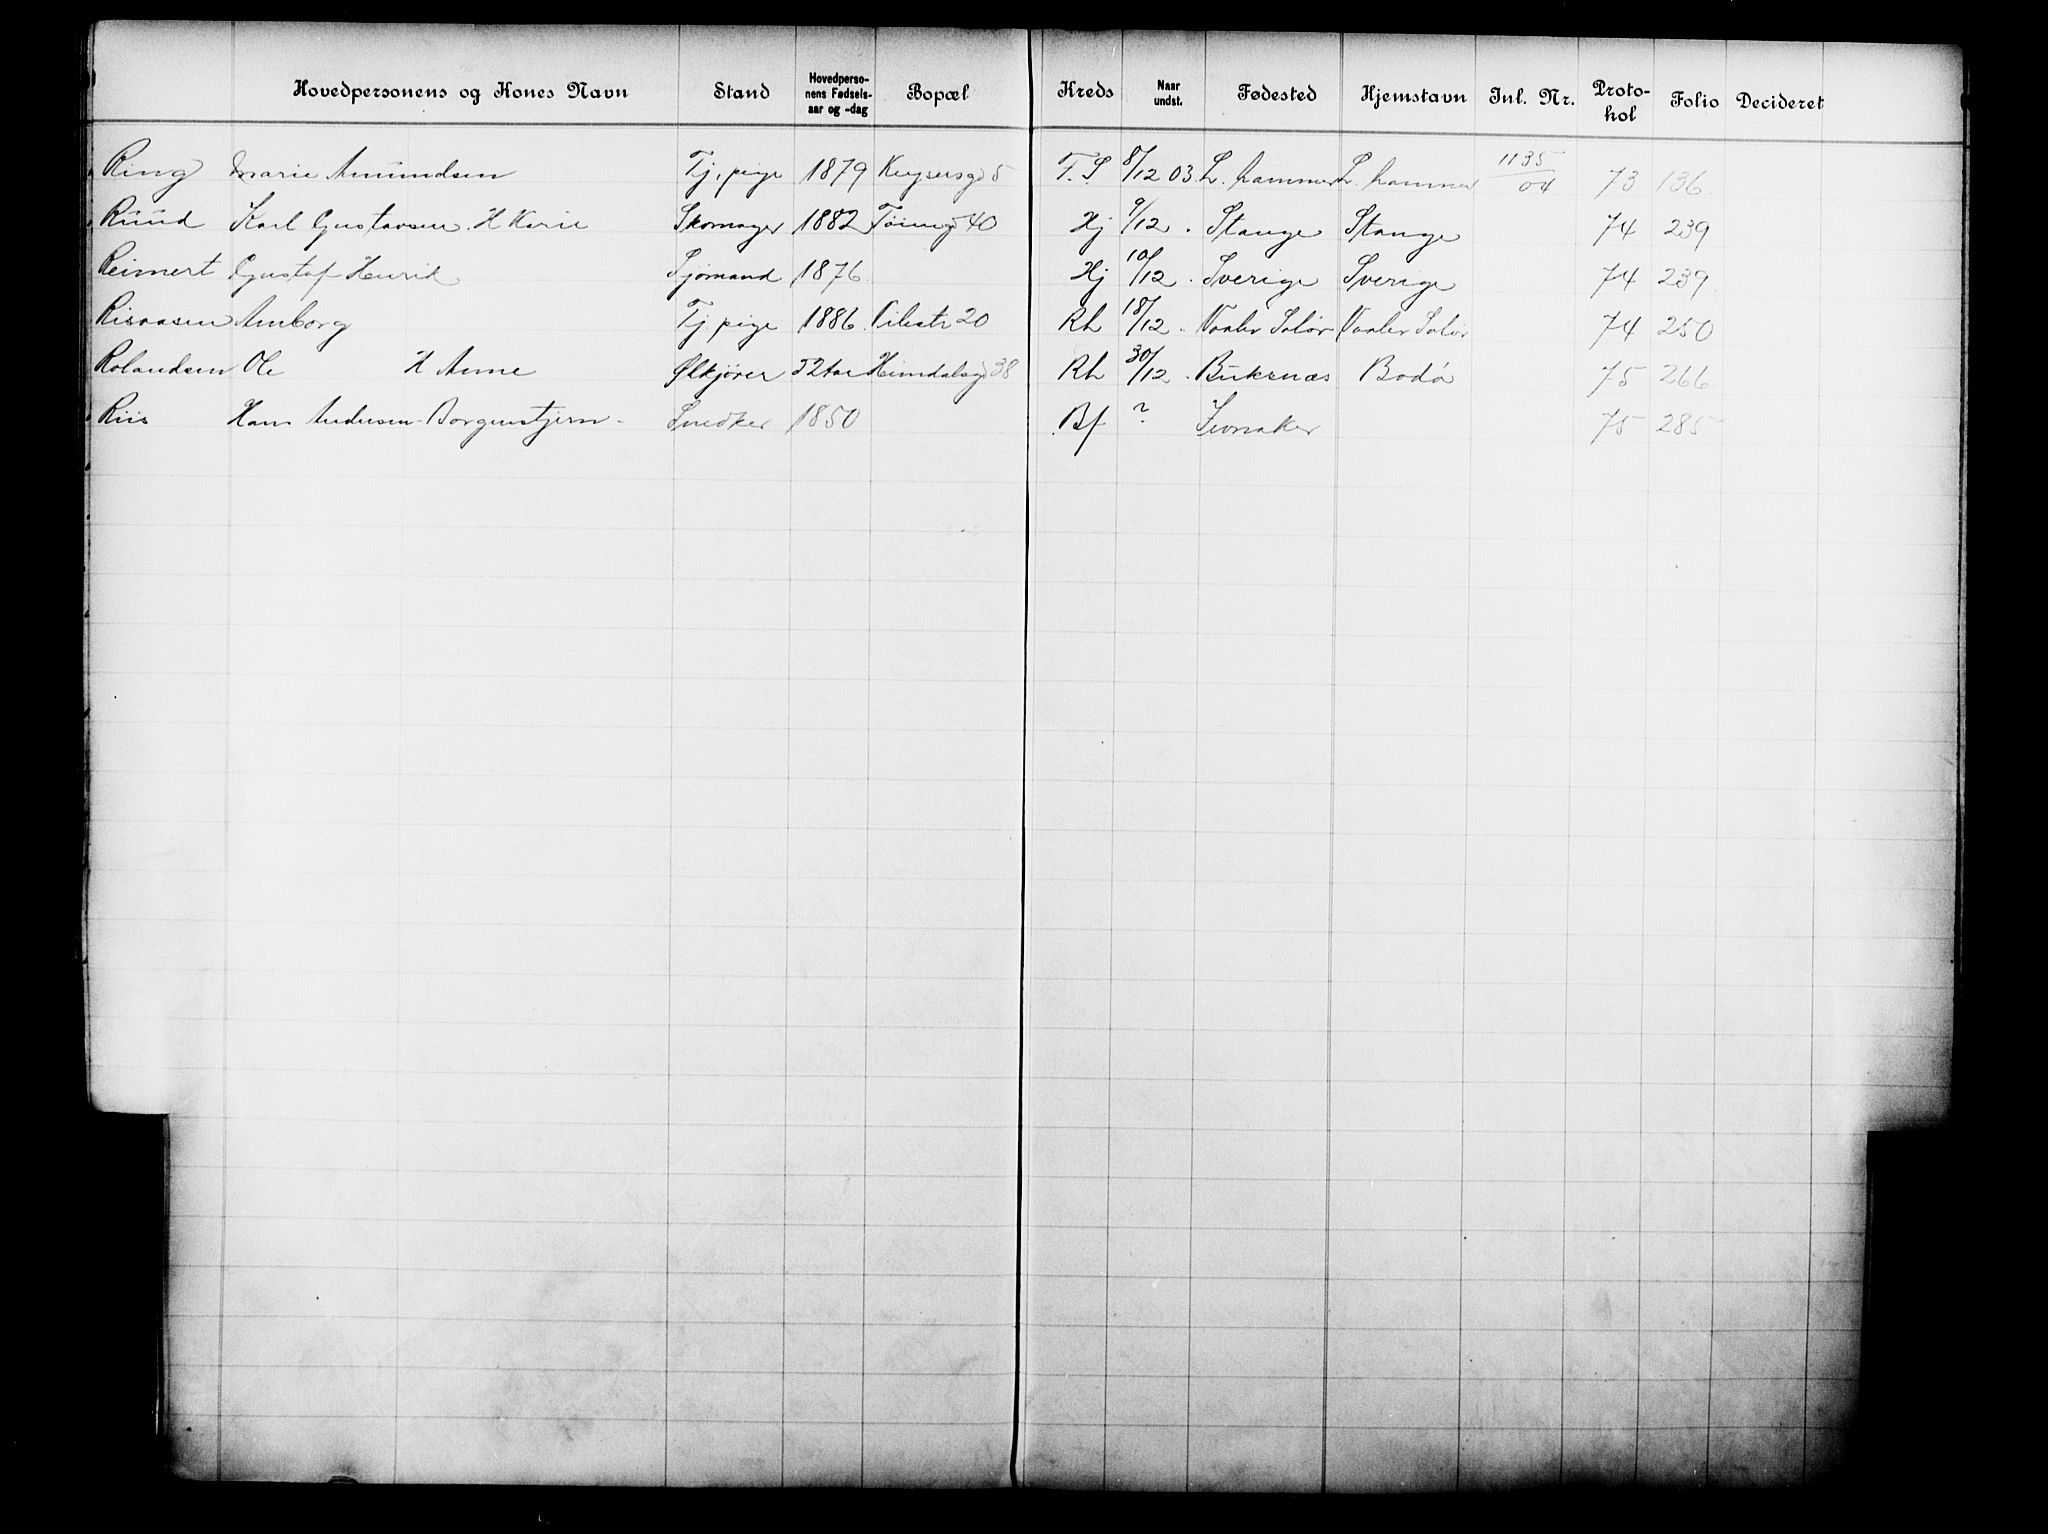 Hovedpersonens og Kones Navn Stand Hovedperso-nens Fødsels-aar og -dag Bopæl Kreds Naar undst. Fødested Hjemstavn Inl. Nr. Proto-kol Folio Decideret
Ring Marie Amundsen Tj. pige 1879 Keysersgd 5 F. S. 8/12 03 L. hammer L. hammer 1135/04 73 136
Ruud Karl Gustavsen. H Karie Skomager 1882 Töiengd 40 Hj 9/12 . Stange Stange 74 239
Reimert Gustaf Henrik Sjömand 1876 Hj 10/12 . Sverige Sverige 74 239
Risaasen Amborg Tj. pige 1886 Pilestr 20 Rh 18/12 . Vaaler Solör Vaaler Solör 74 250
Rolandsen Ole H Anne Ølkjörer 52 aar Heimdalsgd 38 Rh 30/12 . Buksnæs Bodö 75 266
Riis Hans Andersen - Borgenstjern - Snedker 1850 Bf ? Jevnaker 75 285